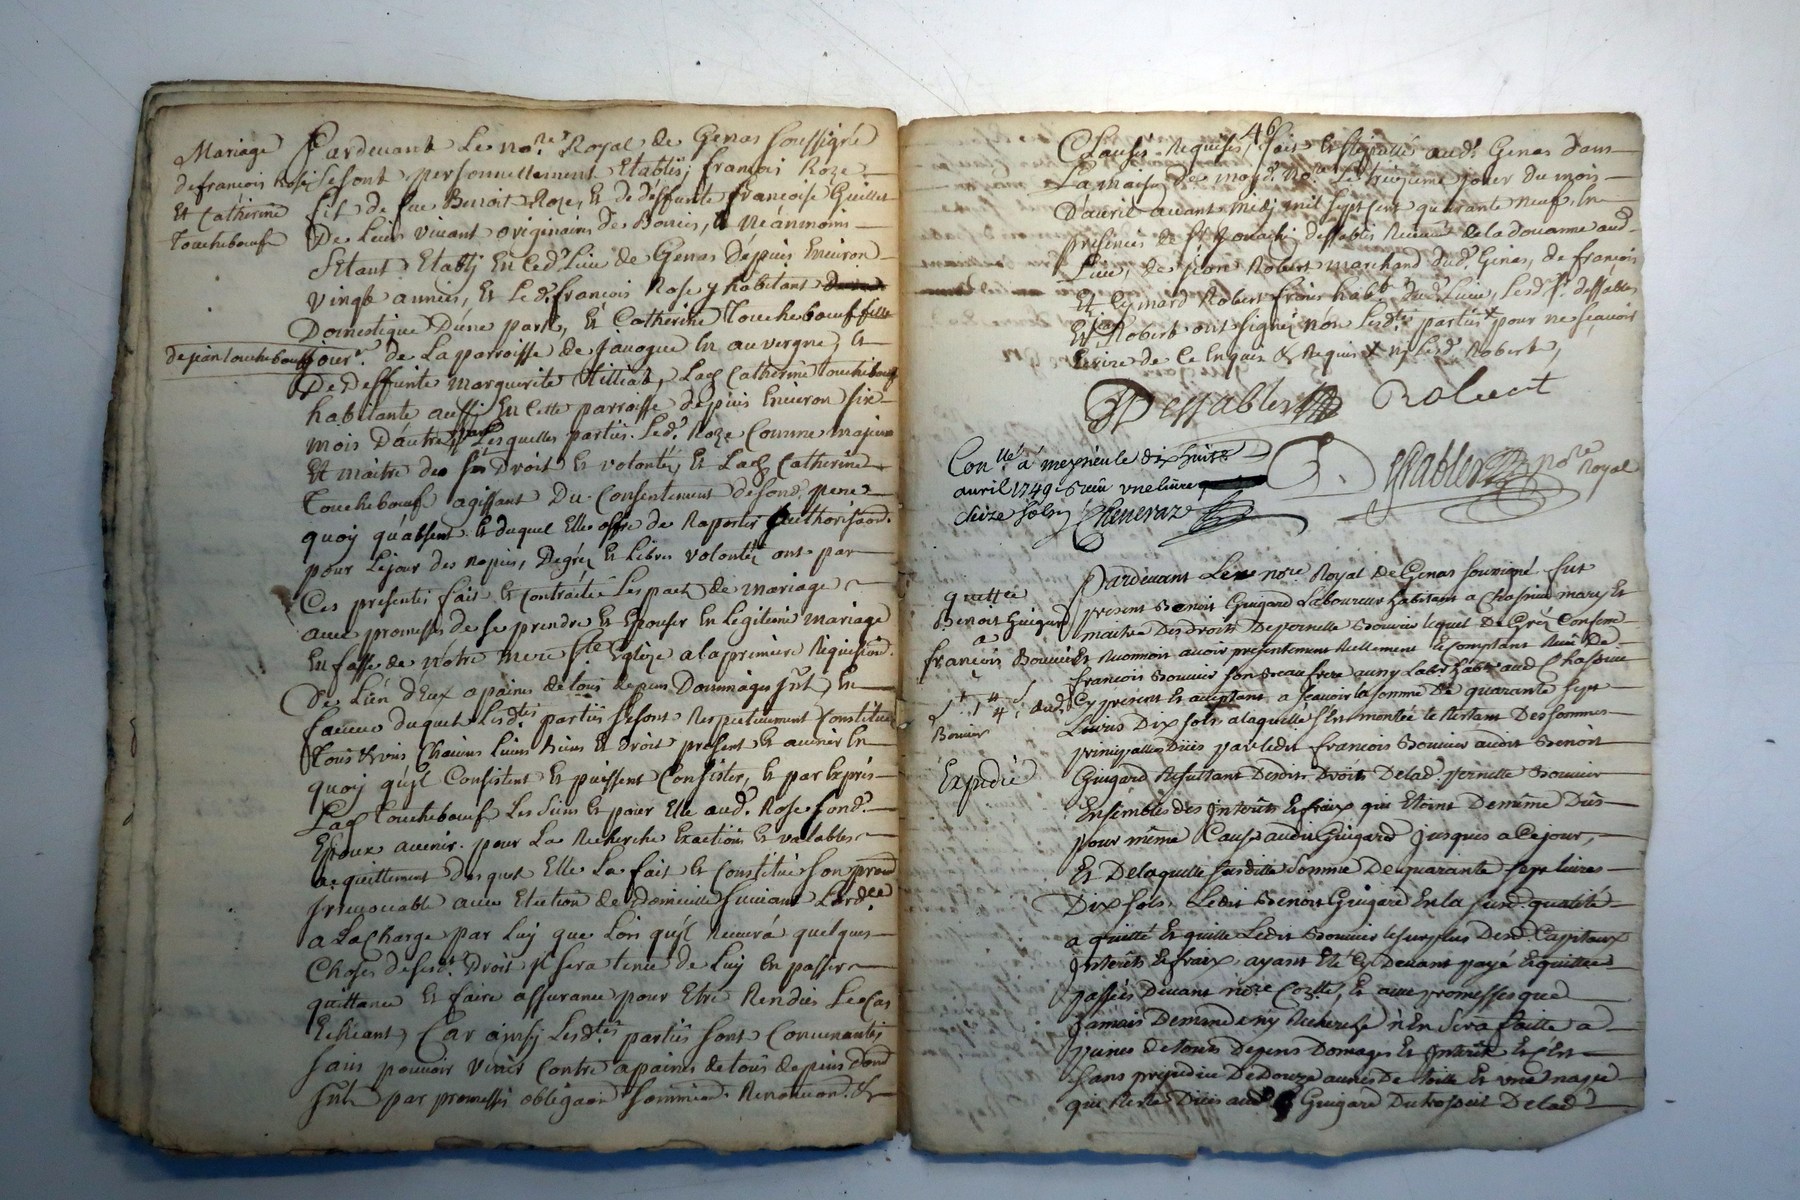 Mariage
de francois Rose
Et Catherine
Touchebœuf
Pardevant Le no.re Royal de Genas soussigné
se sont personnellement Etablis, francois Roze
fils de feu Benoit Roze, Et de deffunte francoise Guillet
De Leur vivant originaires de Bonies, Neánmoins
Setant Etably En Led. Lieu de Genas Depuis Environ
vingt années, Et Led. francois Rose y habitant
Domestique D'une part, Et Catherine Touchebœuf fille
de jean touchebœuf
jour.r de La parroisse de Janogue En auvergne, Et
De deffunte marguerite Lad. Catherine touchebœuf
habitante aussy En Cette parroisse depuis Environ six
mois D'autre part Lesquelles parties. Led. Roze Comme majeur
Et maitre de ses Droits Et volontés, Et Lad. Catherine
Touchebœuf agissant Du Consentement de son d. pere
quoy qu'absent Et duquel Elle offre de Raporter
pour Le jour des Nopces, De gré, Et Libre volonté ont par
Ces presentes fait Et Contracté Les pact de mariage
avec promesses de se prendre Et Epouser En Legitime mariage
En fasse de Notre Mere Ste Eglize a la premiere Requision.
De L'un d'Eux a paines de tous depens Dommages Et
faveur duquel Lesd.tes parties se sont Respectivement Constitué
Tous Chacuns Leurs Biens Et Droit present Et avenir En
quoy qu'yl Consistent Et puissent Consister, Et par Exprès
Lad. Touchebœuf Les Siens Et pour Elle aud. Rose son d.
Epoux avenir. pour La Recherche Exactions Et valables
acquittement desquels Elle La fait Et Constitué son
Irrevocable avec Election de Domicille suivant L'ord.ce
a La Charge par Luy que Lors qu'yl Recevra quelques
Choses desesd. Droit yl sera tenu de Luy En passer
quittance Et faire assurance pour Etre Rendües Le Cas
Echeant, Car ainsy Lesd.tes parties sont Convenantes
sans pouvoir venir Contre a paines de tous depens
par promesses obligaon Renonciaon. &
46
Clauses Requises, fait Et Stipullé aud. Genas Dans
La maison de moyd. No.re Le treizieme jour du mois
D'avril avant midy mil sept Cent quarante neuf, En
presences de Sr dessables Receveur de la douanne aud.
Lieu, de jean Robert marchand dud. Genas, de francois
Et Eymard Robert freres hab.t dud. Lieu, Lesd. Sr. dessables
Et Robert ont signé, non Lesd.tes parties pour ne Scavoir
Ecrire de Ce Enquis & Requis Led. Robert,
Dessables Robert
Con.llé a meyzieu le dix huit
avril 1749 Reçu une livre
seize sols Cheneraz
Dessables no.re Royal
quittce
Benoit Guigard
a
francois Bouvier
Bouvier
Expedié
Pardevant Le no.re Royal De Genas soussigné fut
present Benoit Guigard Laboureur habitant a Chassieu mary Et
maitre Des droits De pernelle Bouvier lequel De Gré Confesse
Et Reconnoit avoir presentement Reellement Et Comptant Receu de
francois Bouvier son Beau frere aussy Lab.r hab.t aud. Chassieu
Cy present Et acceptant a scavoir la somme De quarante sept
Livres Dix sols a laquelle s'est montée le Restant Des sommes
principalles Dües par ledit francois Bouvier audit Benoit
Guigard Resultant Desdits Droits De lad. pernelle Bouvier
Ensembles des Interêts Et fraix qui Etoint De même Düs
pour même Cause audit Guigard Jusques a Ce jour,
Et De laquelle susditte Somme De quarante sept livres
Dix sols. Ledit Benoit Guigard En la susd. qualité
a quitté Et quitte Ledit Bouvier le surplus Desd. Cappitaux
Interêts Et fraix, ayant Eté Cy Devant payé Et quittée
passées Devant no.re Et avec promesses que
Jamais Demande ny Recherche n'En sera faitte a
peines De tous Depens Domages Et Interêts Et C'Est
Sans prejudice De Douze aunes De toille Et une nappe
qui Restes Dües aud. Guigard Du trossel De lad.